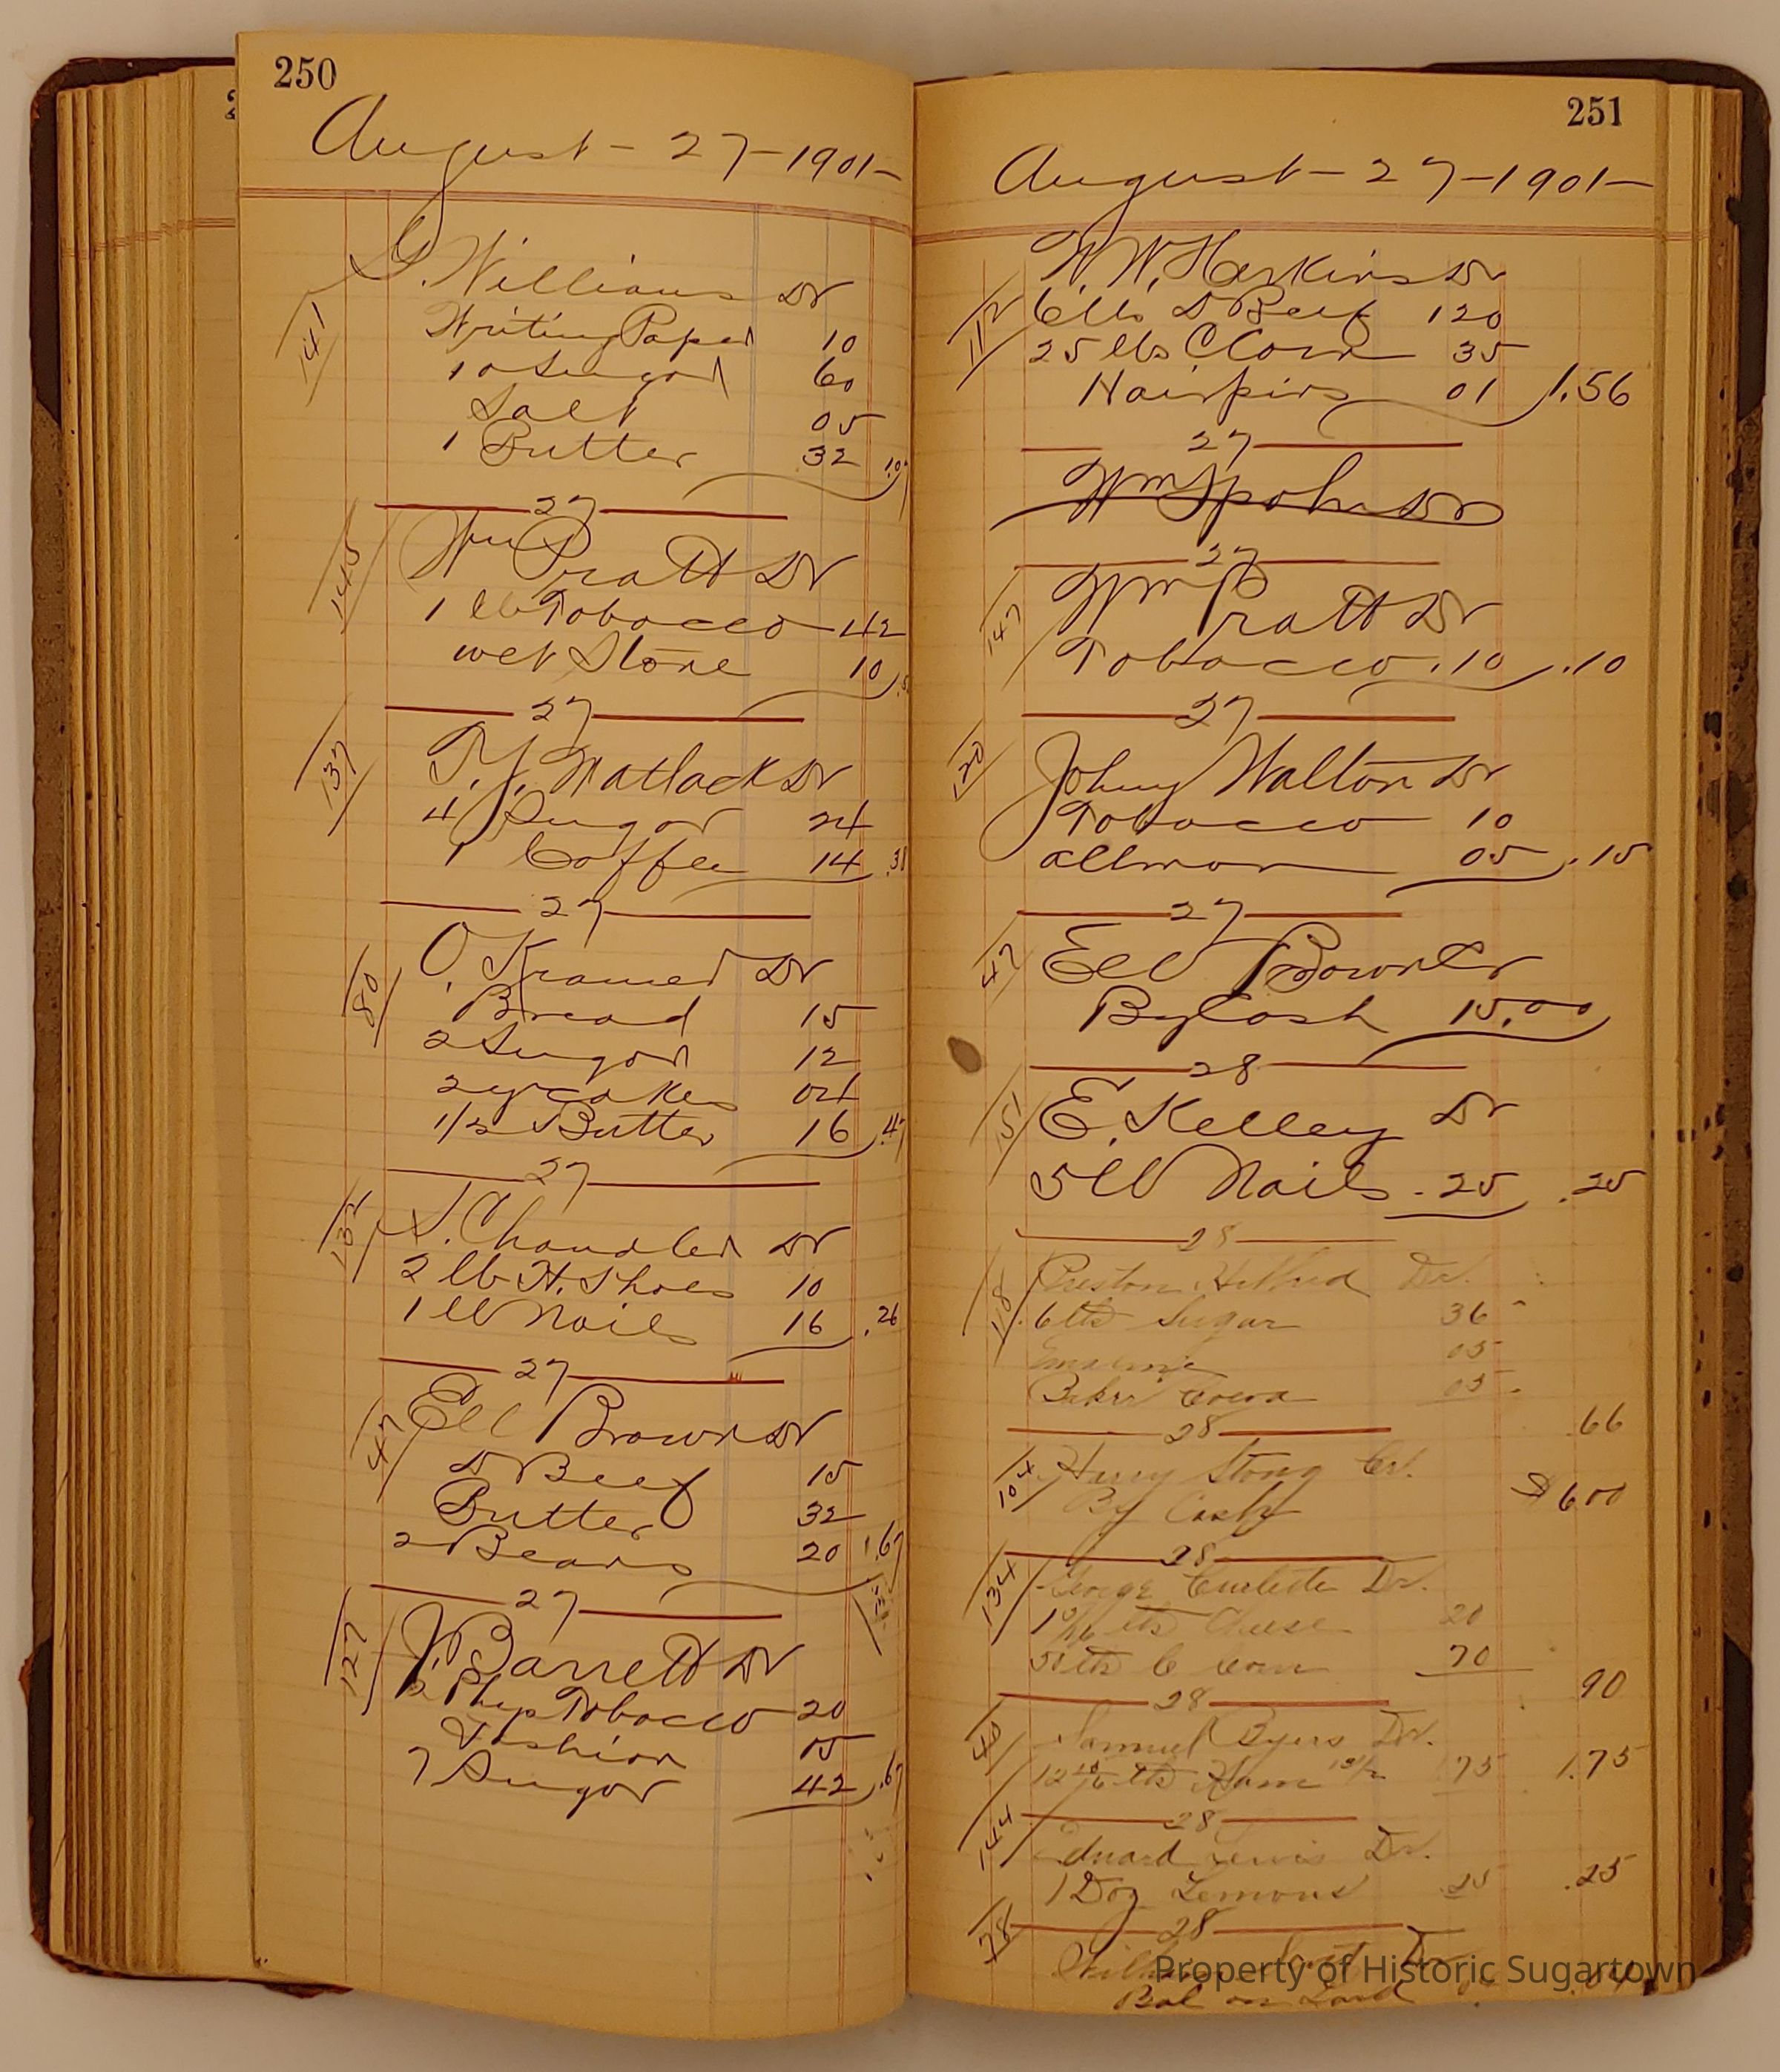 250
August - 27 - 1901 -
141
G. Williams Dr
Writing Paper 10
10 Sugar 60
Salt 05
1 Butter 32
27
145
Wm Pratt Dr
1 lb Tobacco 42
wet Stone 10
27
137
T. J. Matlack Dr
4 Sugar 24
1 Coffee 14 .38
27
80
O. Kramer Dr
Bread 15
2 Sugar 12
2 y cakes 04
1/2 Butter 16 .47
27
132
S. Chandler Dr
2 lb H. Shoes 10
1 lb Nails 16 .26
27
47
Ell Brown Dr
D Beef 15
Butter 32
2 Beans 20 .67
27
127
J. Barrett Dr
2 Plugs Tobacco 20
Fashion 05
7 Sugar 42 .67
251
August - 27 - 1901 -
112
W. W. Harkins Dr
6 lbs D Beef 120
25 lbs C Corn 35
Hairpins 01 1.56
27
Wm Spohn Dr
27
147
Wm Pratt Dr
Tobacco .10 .10
27
120
Johny Walton Dr
Tobacco 10
05 .15
27
47
Ell Brown Cr
By Cash 15.00
28
151
E. Kelley Dr
5 lb Nails .25 .25
28
118
Preston Dr.
6 lbs Sugar 36
05
Baker Cocoa 05
.66
28
104
Harry Stong Cr.
By Cash $600
28
134
George Dr.
lbs Cheese 20
50 lbs C Corn 70
90
28
40
Samuel Byers Dr.
lbs Ham 1.75 1.75
28
144
Eduard Lewis Dr.
1 Doz Lemons .25 .25
28
78
Dr
Bal on Lard
Property of Historic Sugartown